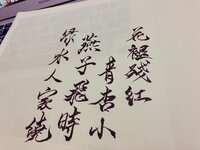 花褪殘红
青杏小
燕子飛時
绿水人家繞